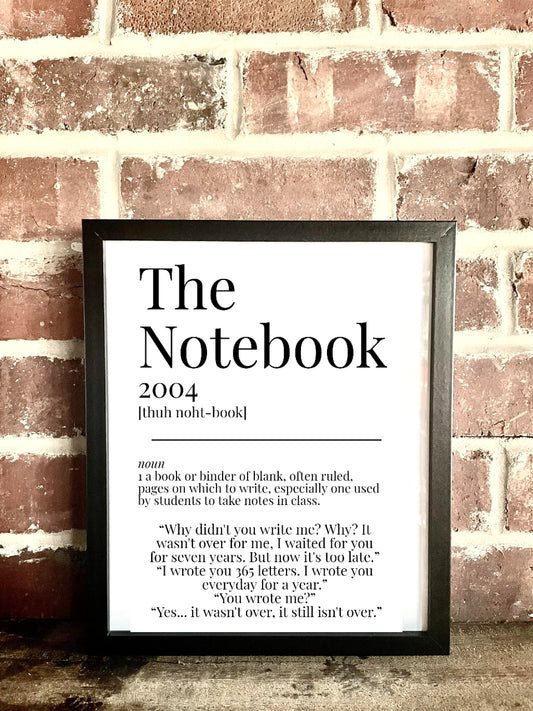 The
Notebook
2004
[thuh noht-book]
noun
1 a book or binder of blank, often ruled,
pages on which to write, especially one used
by students to take notes in class.
“Why didn't you write me? Why? It
wasn't over for me, I waited for you
for seven years. But now it's too late.”
“I wrote you 365 letters. I wrote you
everyday for a year.”
“You wrote me?”
“Yes... it wasn't over, it still isn't over.”